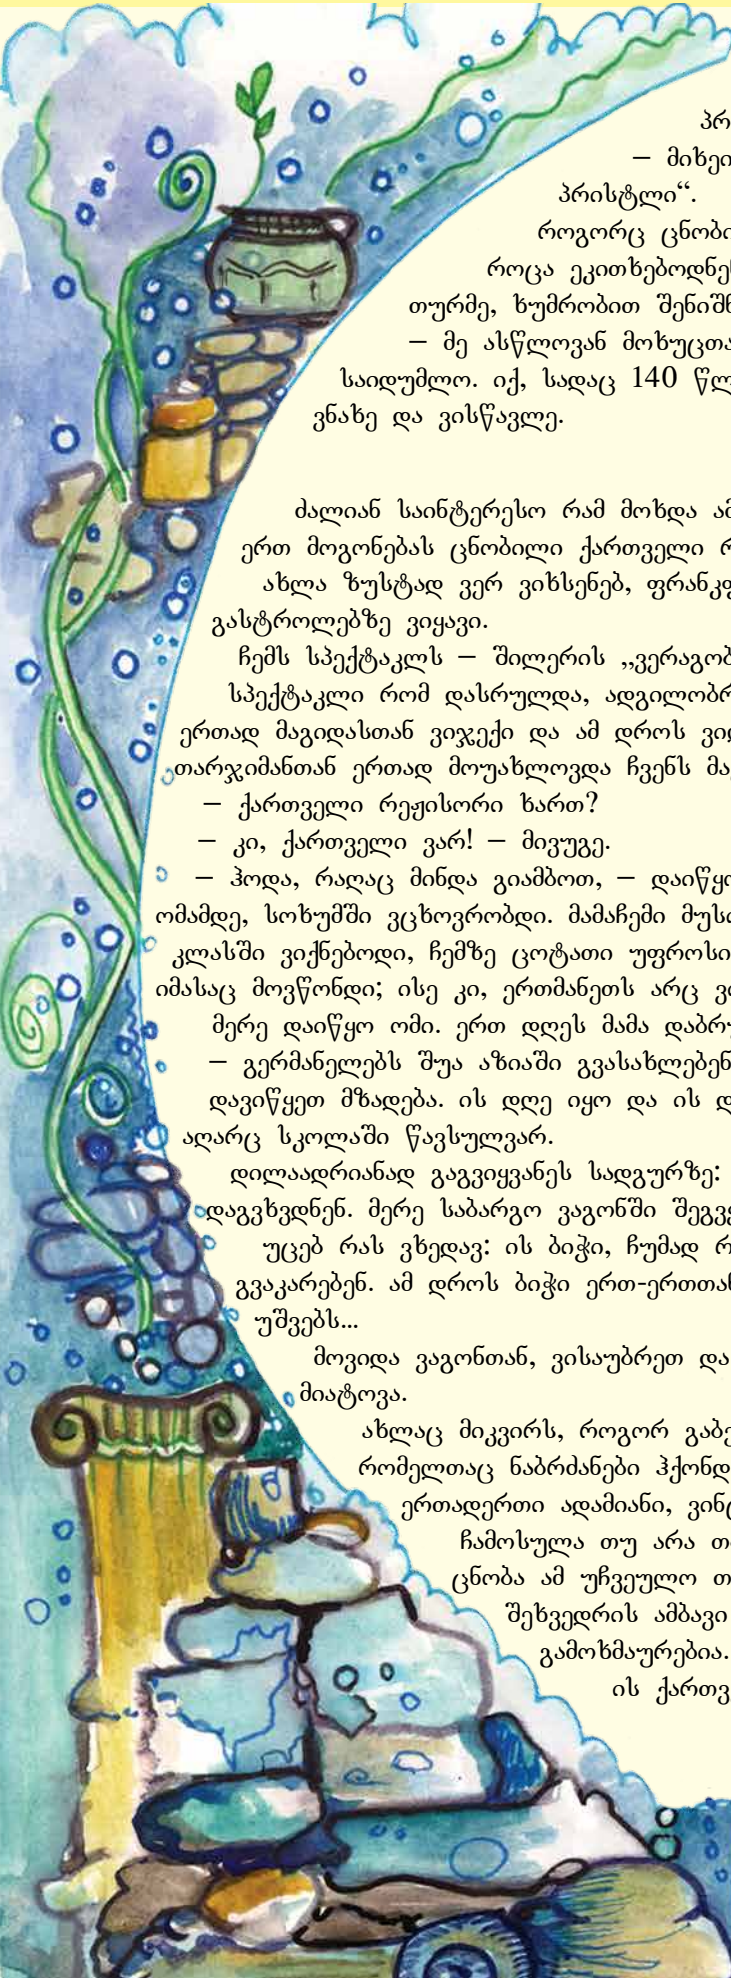 პრ
– მიხეი
პრისტლი“.
როგორც ცნობი
როცა ეკითხებოდნე
თურმე, ხუმრობით შენიშნ
– მე ასწლოვან მოხუცთა
საიდუმლო. იქ, სადაც 140 წლ
ვნახე და ვისწავლე.
ძალიან საინტერესო რამ მოხდა ამ
ერთ მოგონებას ცნობილი ქართველი რ
ახლა ზუსტად ვერ ვიხსენებ, ფრანკფ
გასტროლებზე ვიყავი.
ჩემს სპექტაკლს – შილერის „ვერაგობ
სპექტაკლი რომ დასრულდა, ადგილობრ
ერთად მაგიდასთან ვიჯექი და ამ დროს ვიღ
თარჯიმანთან ერთად მოუახლოვდა ჩვენს მა
– ქართველი რეჟისორი ხართ?
– კი, ქართველი ვარ! – მივუგე.
– ჰოდა, რაღაც მინდა გიამბოთ, – დაიწყო
ომამდე, სოხუმში ვცხოვრობდი. მამაჩემი მუს
კლასში ვიქნებოდი, ჩემზე ცოტათი უფროსი
იმასაც მოვწონდი; ისე კი, ერთმანეთს არც ვი
მერე დაიწყო ომი. ერთ დღეს მამა დაბრუ
– გერმანელებს შუა აზიაში გვასახლებენ
დავიწყეთ მზადება. ის დღე იყო და ის დ
აღარც სკოლაში წავსულვარ.
დილაადრიანად გაგვიყვანეს სადგურზე:
დაგვხვდნენ. მერე საბარგო ვაგონში შეგვყ
უცებ რას ვხედავ: ის ბიჭი, ჩუმად რ
გვაკარებენ. ამ დროს ბიჭი ერთ-ერთთან
უშვებს...
მოვიდა ვაგონთან, ვისაუბრეთ და
მიატოვა.
ახლაც მიკვირს, როგორ გაბე
რომელთაც ნაბრძანები ჰქონდ
ერთადერთი ადამიანი, ვინც
ჩამოსულა თუ არა თ
ცნობა ამ უჩვეულო თ
შეხვედრის ამბავი
გამოხმაურებია.
ის ქართვ